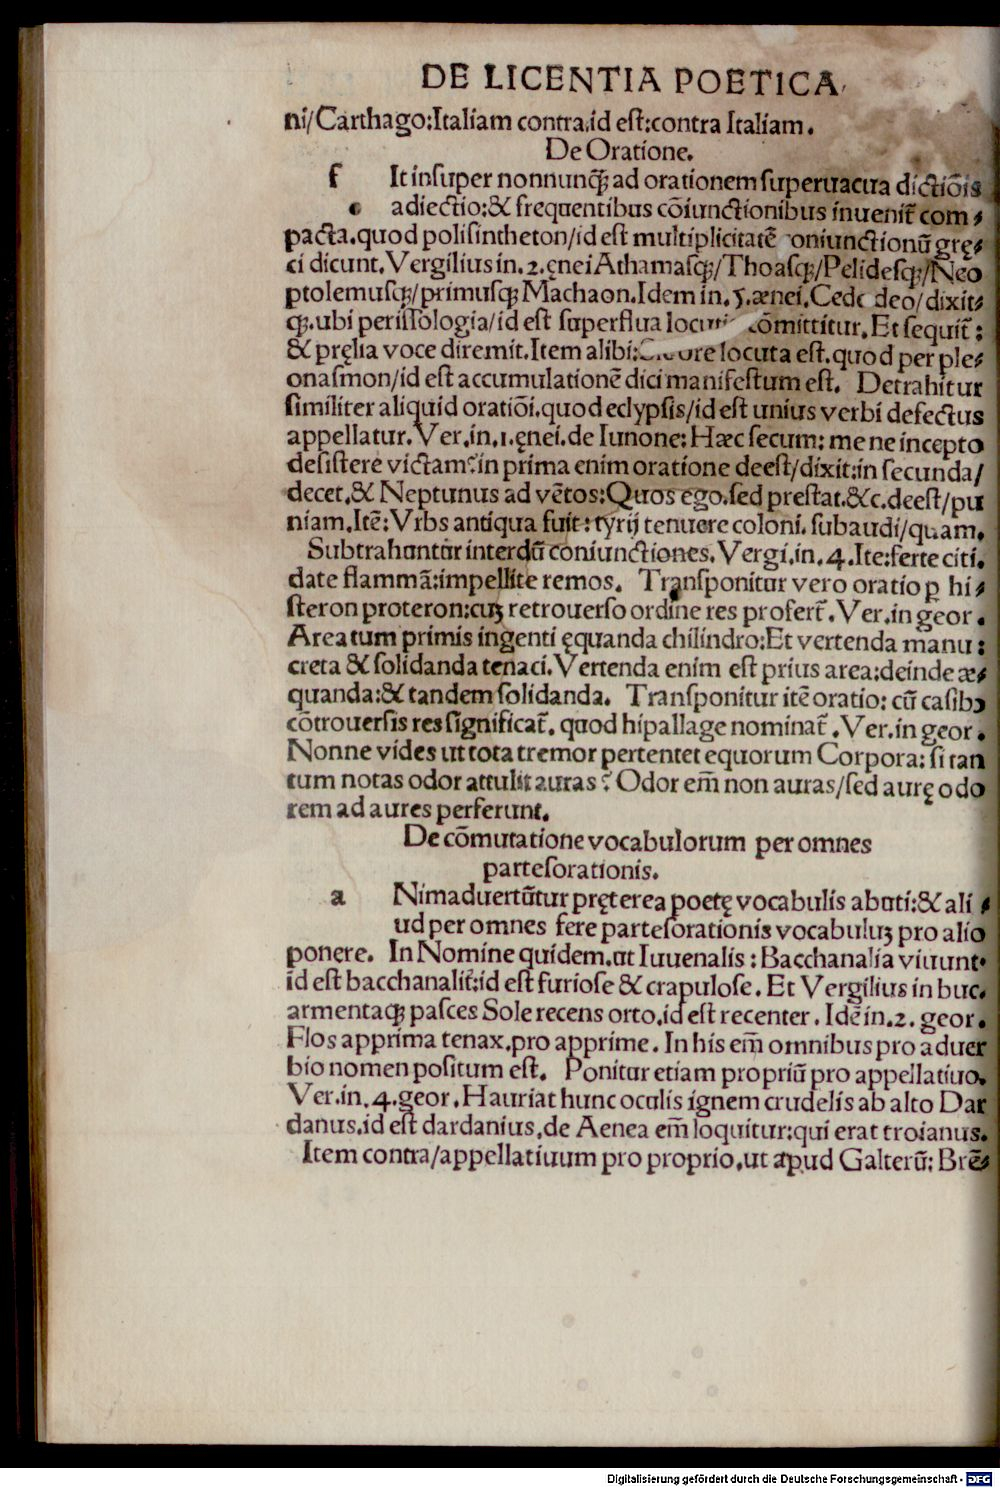 DE LICENTIA POETICA,
ni/Carthago:Italiam contra,id eſt:contra Italiam.
De Oratione.
f It inſuper nonnunq̃ ad orationem ſuperuacua dictiõis
adiectio:& frequentibus cõiunctionibus inuenit̃ com⸗
pacta.quod poliſintheton/id eſt multiplicitatẽ oniunctionũ grę⸗
ci dicunt.Vergilius in.2.ęnei Athamaſq;/Thoaſq;/Pelideſq;/Neo
ptolemuſq;/primuſq; Machaon.Idem in.5.ænei.Cede deo/dixit⸗
q;.ubi periſſologia/id eſt ſuperflua locuti cõmittitur.Et ſequit̃:
& pręlia voce diremit.Item alibi: ore locuta eſt.quod per ple⸗
onaſmon/id eſt accumulationẽ dici manifeſtum eſt. Detrahitur
ſimiliter aliquid oratiõi.quod eclypſis/id eſt unius verbi defectus
appellatur.Ver.in.1.ęnei.de Iunone:Hæc ſecum:me ne incepto
deſiſtere victam?in prima enim oratione deeſt/dixit:in ſecunda/
decet.& Neptunus ad vẽtos:Quos ego.ſed preſtat.&c.deeſt/pu
niam.Itẽ:Vrbs antiqua fuit:tyrij tenuere coloni.ſubaudi/quam.
Subtrahuntur interdũ coniunctiones.Vergi.in.4.Ite:ferte citi.
date flammã:impellite remos. Tranſponitur vero oratio ꝑ hi⸗
ſteron proteron:cuꝫ retrouerſo ordine res profert̃.Ver.in geor.
Area tum primis ingenti ęquanda chilindro:Et vertenda manu:
creta & ſolidanda tenaci.Vertenda enim eſt prius area:deinde æ⸗
quanda:& tandem ſolidanda. Tranſponitur itẽ oratio:cũ caſibꝰ
cõtrouerſis res ſignificat̃.quod hipallage nominat̃.Ver.in geor.
Nonne vides ut tota tremor pertentet equorum Corpora:ſi tan
tum notas odor attulit auras? Odor em̃ non auras/ſed aurę odo
rem ad aures perferunt.
De cõmutatione vocabulorum per omnes
partes orationis.
a Nimaduertũtur pręterea poetę vocabulis abuti:& ali⸗
ud per omnes fere partes orationis vocabuluꝫ pro alio
ponere. In Nomine quidem.ut Iuuenalis:Bacchanalia viuunt.
id eſt bacchanalit̃:id eſt furioſe & crapuloſe.Et Vergilius in buc.
armentaq; paſces Sole recens orto.id eſt recenter.Idẽ in.2.geor.
Flos apprima tenax.pro apprime.In his em̃ omnibus pro aduer
bio nomen poſitum eſt. Ponitur etiam propriũ pro appellatiuo.
Ver.in.4.geor.Hauriat hunc oculis ignem crudelis ab alto Dar
danus.id eſt dardanius.de Aenea em̃ loquitur:qui erat troianus.
Item contra/appellatiuum pro proprio.ut apud Galterũ:Brẽ⸗
Digitalisierung gefördert durch die Deutsche Forschungsgemeinschaft - DFG